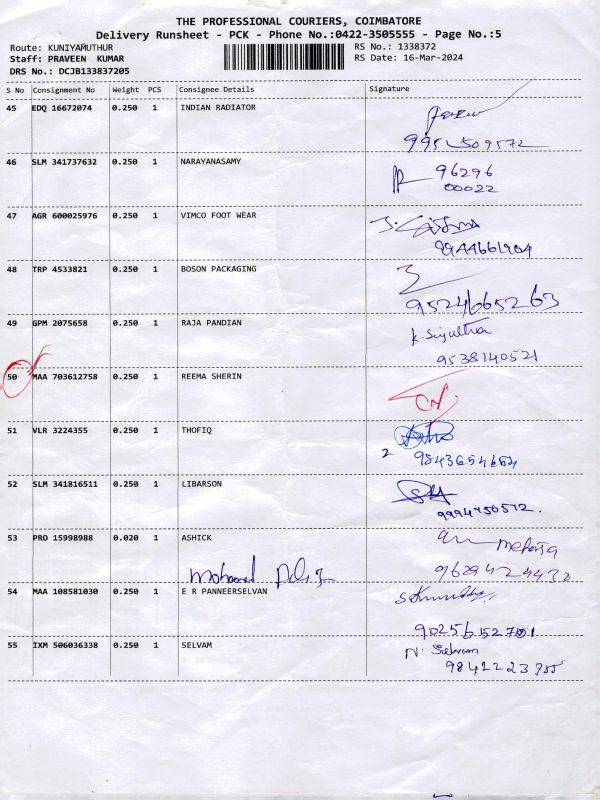 THE PROFESSIONAL COURIERS, COIMBATORE
Delivery Runsheet - PCK - Phone No.:0422-3505555 - Page No.:5
Route: KUNIYAMUTHUR RS No.: 1338372
Staff: PRAVEEN KUMAR RS Date: 16-Mar-2024
DRS No.: DCJB133837205
S No Consignment No Weight PCS Consignee Details Signature
45 EDQ 16672074 0.250 1 INDIAN RADIATOR
46 SLM 341737632 0.250 1 NARAYANASAMY 96296
00022
47 AGR 600025976 0.250 1 VIMCO FOOT WEAR
9944661904
48 TRP 4533821 0.250 1 BOSON PACKAGING
9524665263
49 GPM 2075658 0.250 1 RAJA PANDIAN
9538140521
50 MAA 703612758 0.250 1 REEMA SHERIN
51 VLR 3224355 0.250 1 THOFIQ
9843654664
52 SLM 341816511 0.250 1 LIBARSON
9994750572.
53 PRO 15998988 0.020 1 ASHICK
Mohamed
9629424430
54 MAA 108581030 0.250 1 E R PANNEERSELVAN
9025652701
55 IXM 506036338 0.250 1 SELVAM N. Selvam